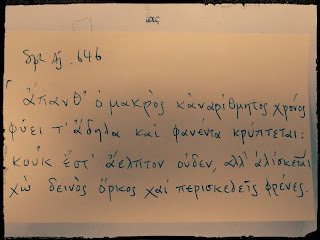 Σοφ Αj . 646
ἅπανθ' ὁ μακρὸς κἀναρίθμητος χρόνος
φύει τ' ἄδηλα καὶ φανέντα κρύπτεται:
κοὐκ ἔστ' ἄελπτον οὐδέν, ἀλλ' ἁλίσκεται
χὠ δεινὸς ὅρκος χαἰ περισκελεῖς φρένες.